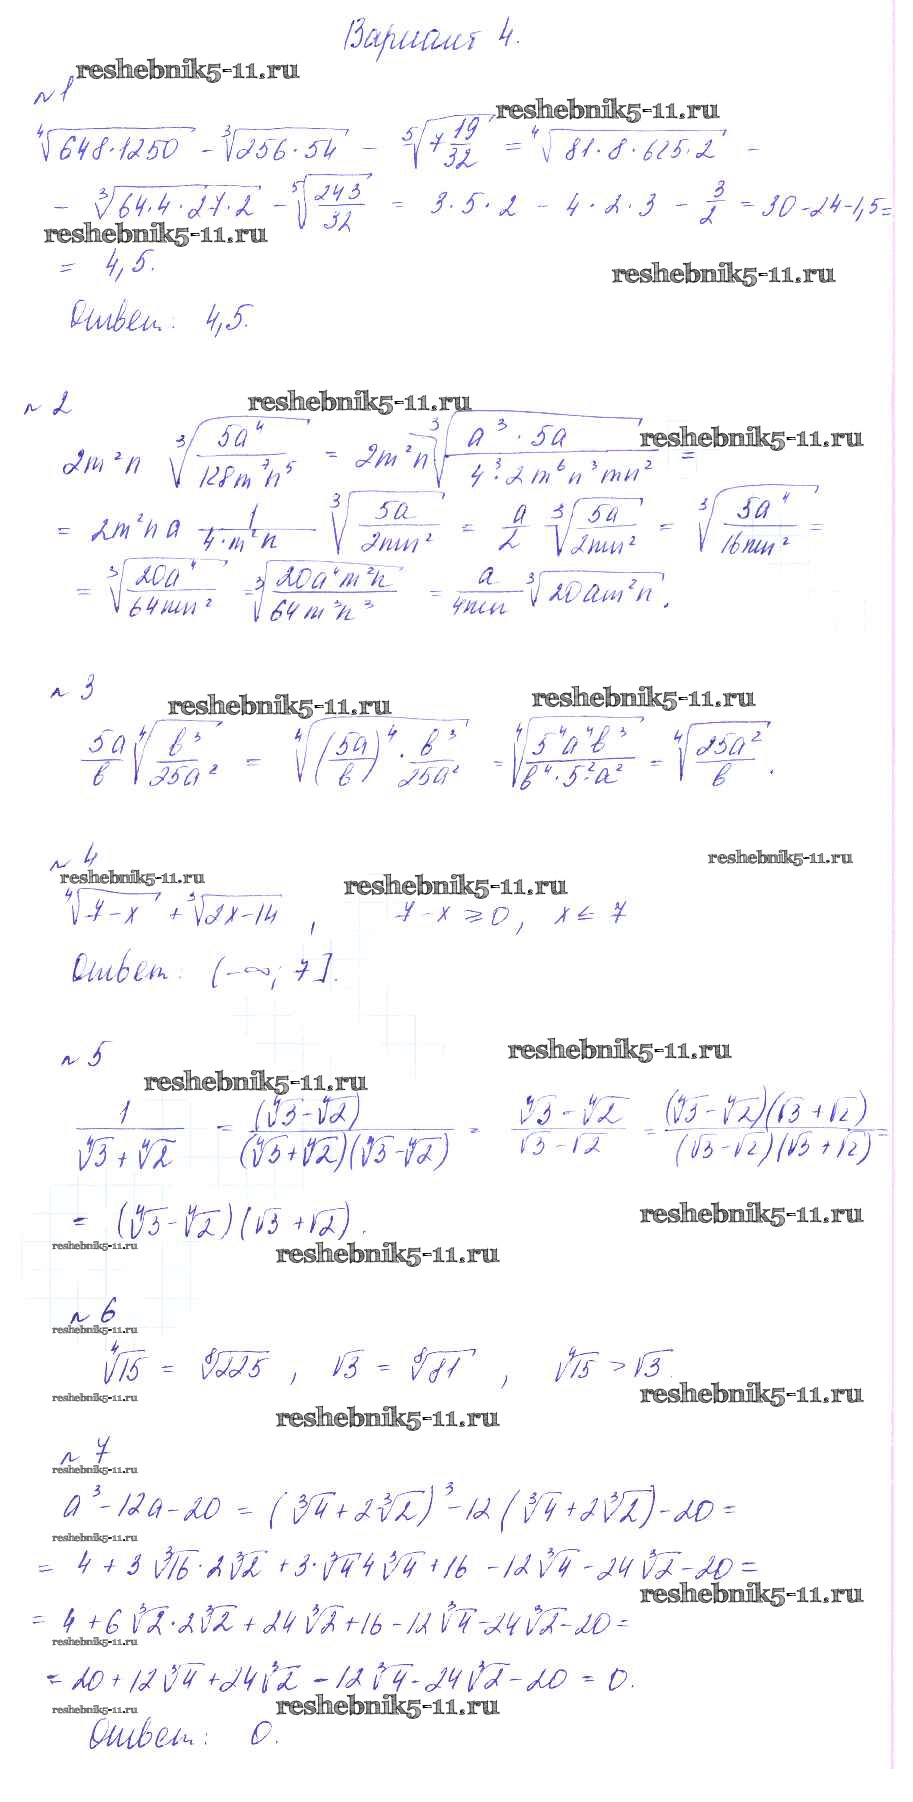 Вариант 4.
reshebnik5-11.ru
№1
reshebnik5-11.ru
⁴√(648·1250) - ³√(256·54) - ⁵√(7 19/32) = ⁴√(81·8·625·2) -
- ³√(64·4·27·2) - ⁵√(243/32) = 3·5·2 - 4·2·3 - 3/2 = 30-24-1,5=
reshebnik5-11.ru
= 4,5.
reshebnik5-11.ru
Ответ: 4,5.
№2
reshebnik5-11.ru
2m²n ³√(5a⁴/128m⁷n⁵) = 2m²n ³√(a³·5a/4³·2m⁶n³mn²) =
reshebnik5-11.ru
= 2m²na 1/4·m²n ³√(5a/2mn²) = a/2 ³√(5a/2mn²) = ³√(5a⁴/16mn²) =
= ³√(20a⁴/64mn²) = ³√(20a⁴m²n/64m³n³) = a/4mn ³√(20am²n).
№3
reshebnik5-11.ru
reshebnik5-11.ru
5a/b ⁴√(b³/25a²) = ⁴√((5a/b)⁴·b³/25a²) = ⁴√(5⁴a⁴b³/b⁴·5²a²) = ⁴√(25a²/b).
№4
reshebnik5-11.ru
reshebnik5-11.ru
reshebnik5-11.ru
⁴√(7-x) + ³√(2x-14), 7-x ≥ 0, x ≤ 7
Ответ: (-∞; 7].
№5
reshebnik5-11.ru
reshebnik5-11.ru
1/(⁴√3+⁴√2) = (⁴√3-⁴√2)/(⁴√3+⁴√2)(⁴√3-⁴√2) = (⁴√3-⁴√2)/(√3-√2) = (⁴√3-⁴√2)(√3+√2)/(√3-√2)(√3+√2) =
= (⁴√3-⁴√2)(√3+√2).
reshebnik5-11.ru
reshebnik5-11.ru
reshebnik5-11.ru
№6
reshebnik5-11.ru
⁴√15 = ⁸√225, √3 = ⁸√81, ⁴√15 > √3.
reshebnik5-11.ru
reshebnik5-11.ru
reshebnik5-11.ru
№7
reshebnik5-11.ru
a³-12a-20 = (³√4+2³√2)³-12(³√4+2³√2)-20=
reshebnik5-11.ru
= 4+3 ³√16·2³√2+3·³√4 4³√4+16-12³√4-24³√2-20=
reshebnik5-11.ru
= 4+6³√2·2³√2+24³√2+16-12³√4-24³√2-20=
reshebnik5-11.ru
= 20+12³√4+24³√2-12³√4-24³√2-20=0.
reshebnik5-11.ru
reshebnik5-11.ru
Ответ: 0.